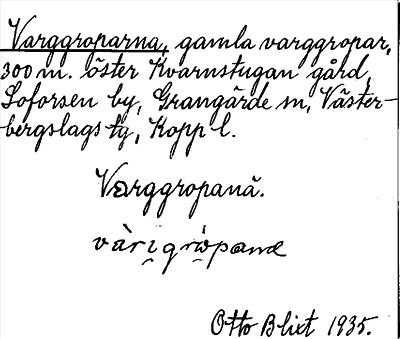 Varggroparna, gamla varggropar,
300 m. öster Kvarnstugan gård,
Soforsen by, Grangärde sn, Väster-
bergslags tg, Kopp l.
Varggropanä.
Otto Blixt 1935.